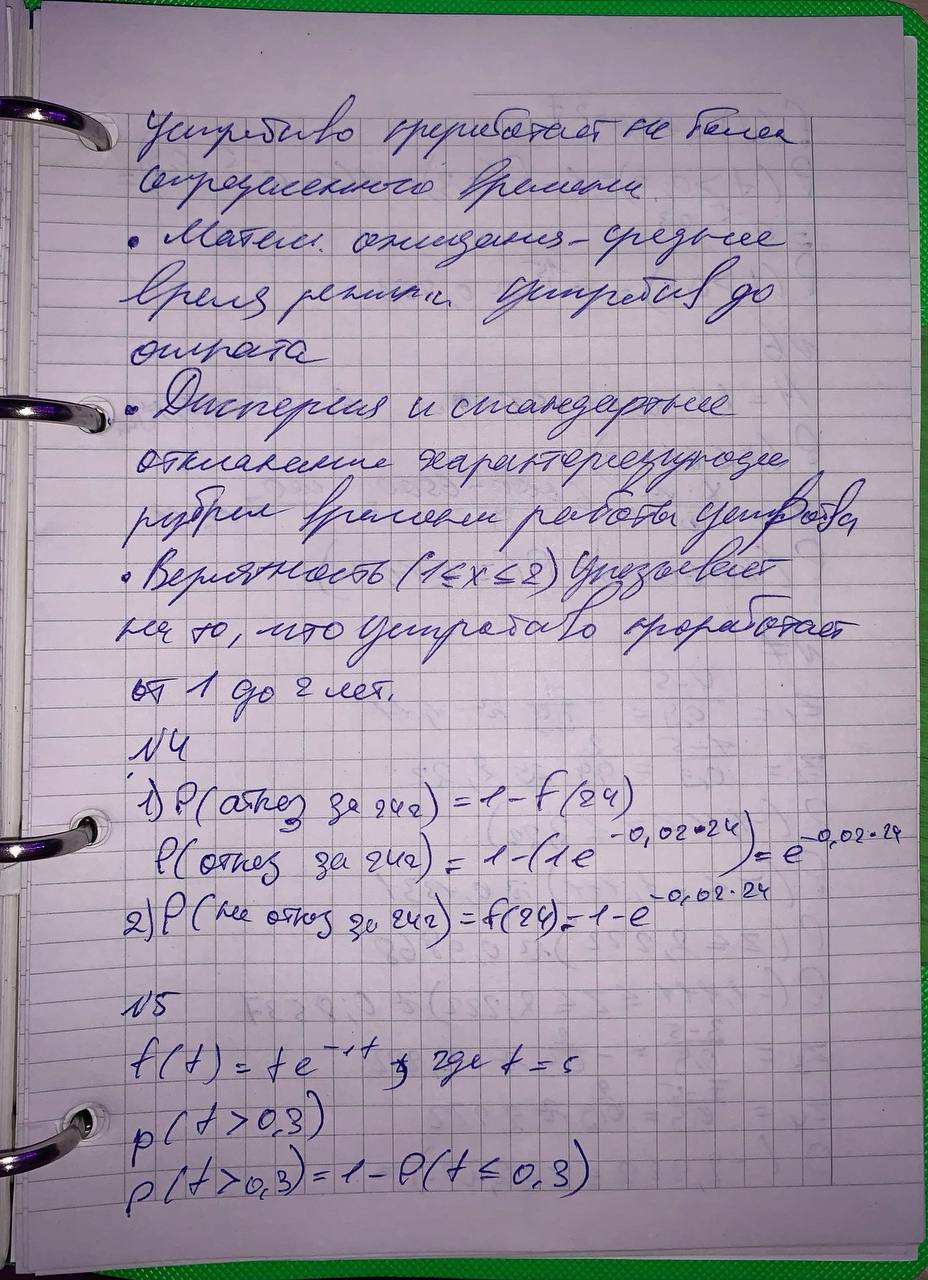 Устройство проработает не более
определенного времени.
• Матем. ожидания - среднее
время устройства до
• Дисперсия и стандартные
отклонение характеризующее
времени работы устройства
• Вероятность (1≤x≤2) указывает
на то, что устройство проработает
от 1 до 2 лет.
№4
1) P(отказ за 24ч) = 1 - F(24)
P(отказ за 24ч) = 1-(1e^{-0,02·24}) = e^{-0,02·24}
2) P(не отказ за 24ч) = f(24) = 1-e^{-0,02·24}
№5
f(t) = te^{-1t}, где t = 5
p(t>0,3)
p(t>0,3) = 1 - P(t ≤ 0,3)